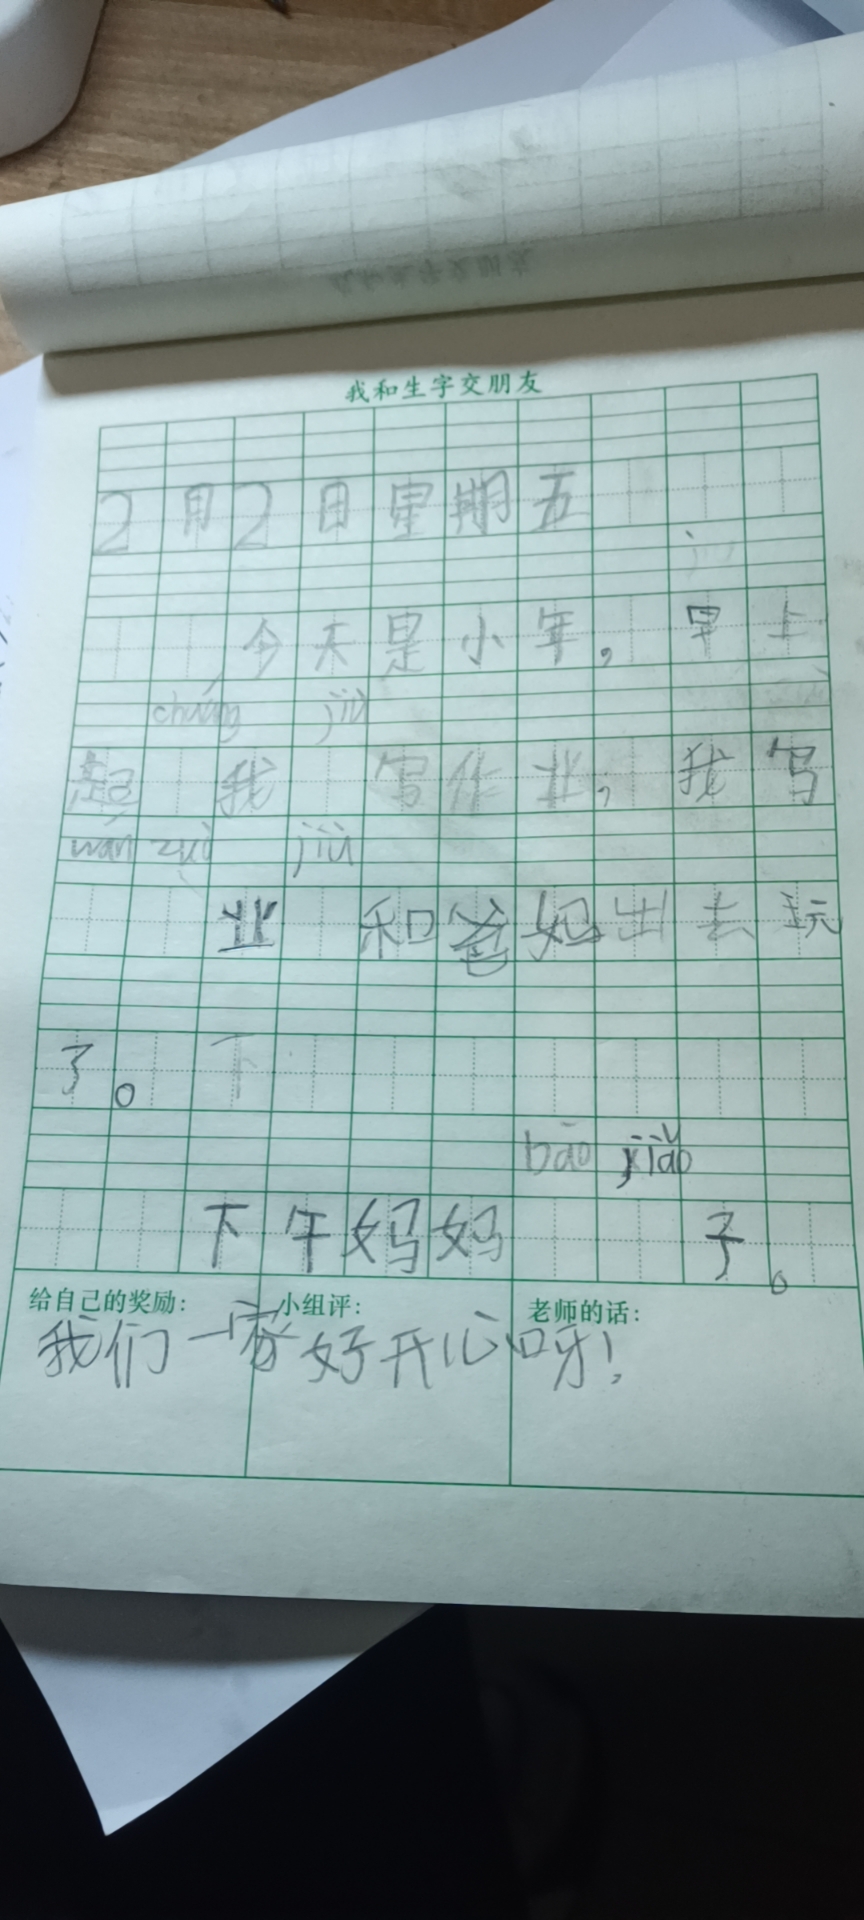 我和生字交朋友
2月2日星期五
今天是小年，早上
chuáng jiù
起 我 写作业，我写
wán zuò jiù
业 和爸妈出去玩
了。下
bāo jiǎo
下午妈妈 子。
给自己的奖励: 小组评: 老师的话:
我们一家好开心呀!